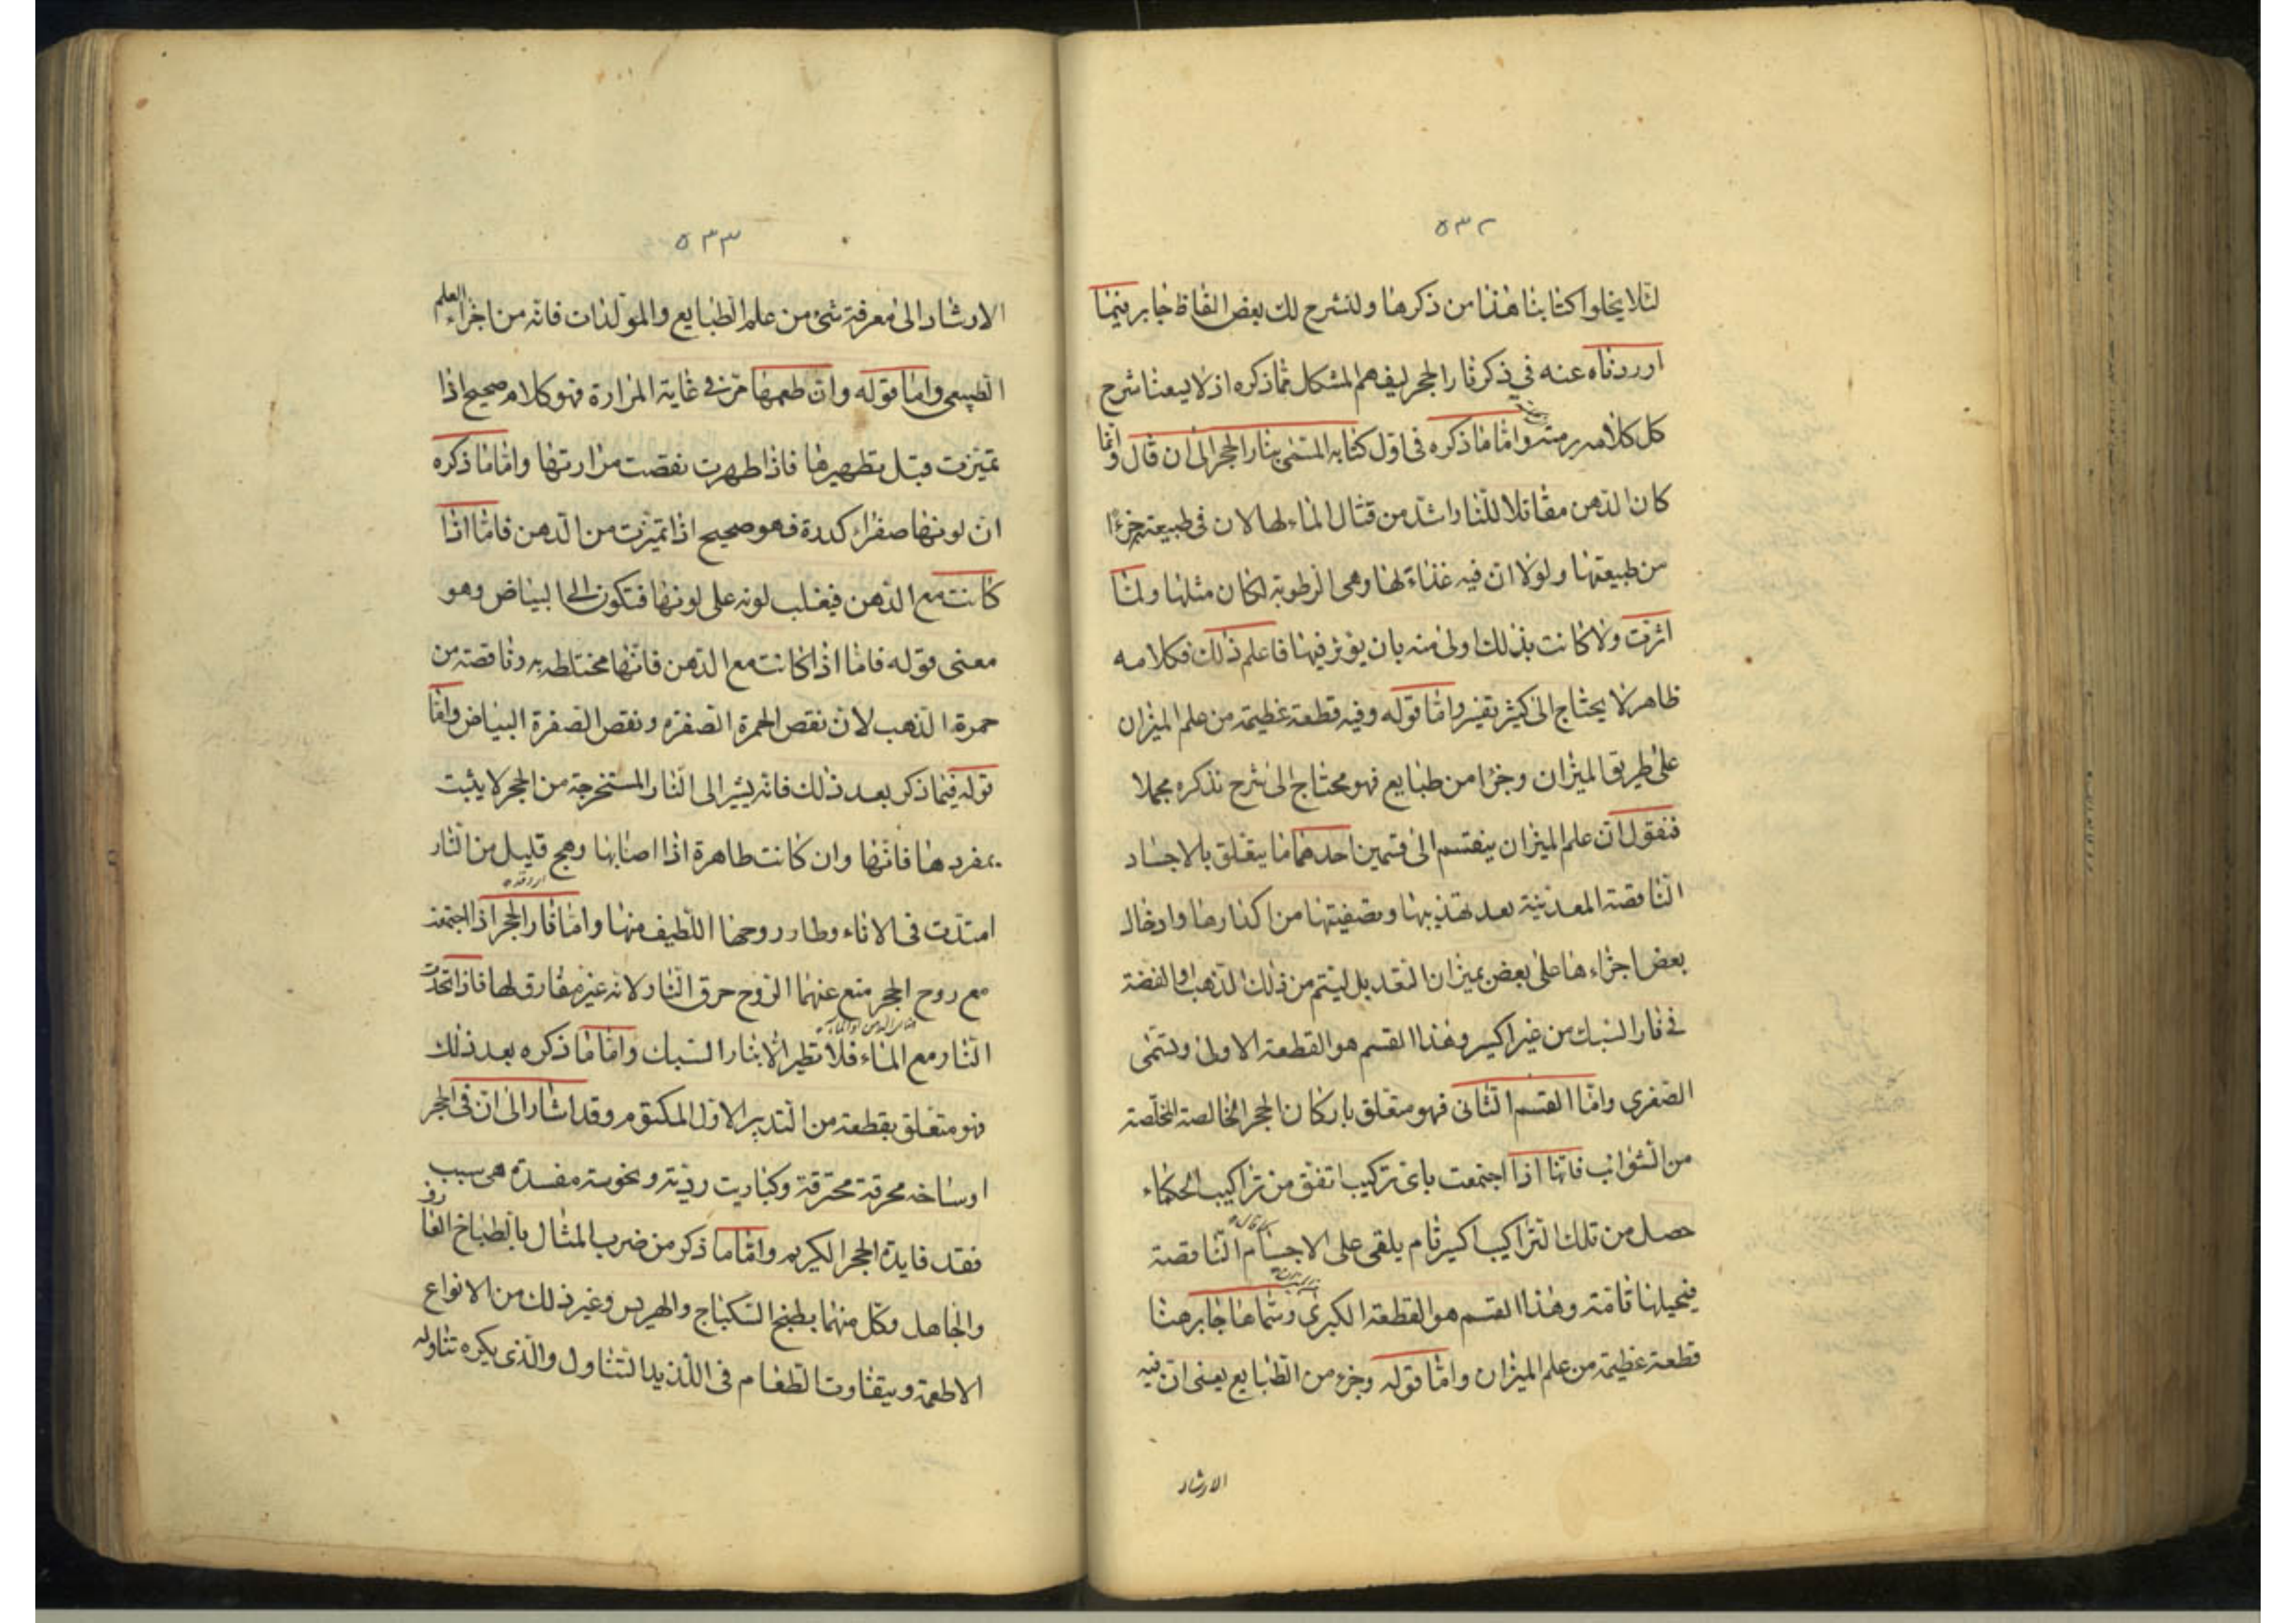 ٥٣٢
لئلا يخلوا كتابنا هذا من ذكرها ولنشرح لك بعض الفاظ جابر فيما
اوردناه عنه في ذكر نار الحجر ليفهم المشكل مما ذكره اذ لا يسعنا شرح
كل كلامه برمته واما ما ذكره في اول كتابه المسمى بنار الحجر الى ان قال وانما
كان الدهن مقاتلا للنار اشد من قتال الماء لها لان في طبيعته جزءا
من طبيعتها ولولا ان فيه غذاء لها وهي الرطوبة لكان مثلها ولما
اثرت ولا كانت بذلك اولى منه بان يؤثر فيها فاعلم ذلك فكلامه
ظاهر لا يحتاج الى كثير تفسير واما قوله وفيه قطعة عظيمة من علم الميزان
على طريق الميزان وجزا من طبايع فهو محتاج الى شرح نذكره مجملا
فنقول ان علم الميزان ينقسم الى قسمين احدهما ما يتعلق بالاجساد
الناقصة المعدنية بعد تهذيبها وتصفيتها من اكدارها وادخال
بعض اجزاءها على بعض بميزان التعديل ليتم من ذلك الذهب والفضة
في نار السبك من غير اكسير وهذا القسم هو القطعة الاولى وتسمى
الصغرى واما القسم الثاني فهو متعلق باركان الحجر الخالصة المخلصة
من الشوائب فانها اذا اجتمعت باى تركيب اتفق من تراكيب الحكماء
حصل من تلك التراكيب اكسير تام يلقى على الاجسام الناقصة
فيحيلها تامة وهذا القسم هو القطعة الكبرى وسماها جابر هنا
قطعة عظيمة من علم الميزان واما قوله وجزء من الطبايع يعنى ان فيه
الارشاد
٥٣٣
الارشاد الى معرفة شئ من علم الطبايع والمولدات فانه من اجزاء العلم
الطبيعى واما قوله وان طعمها مر في غاية المرارة فهو كلام صحيح اذا
تميزت قبل تطهيرها فاذا طهرت نقصت مرارتها واما ما ذكره
ان لونها صفراء كدرة فهو صحيح اذا تميزت من الدهن فاما اذا
كانت مع الدهن فيغلب لونه على لونها فتكون الى البياض وهو
معنى قوله فاما اذا كانت مع الدهن فانها مختلطة به وناقصة من
حمرة الذهب لان نقص الحمرة الصفرة ونقص الصفرة البياض واما
قوله فيما ذكر بعد ذلك فانه يشير الى النار المستخرجة من الحجر لا يثبت
بمفردها فانها وان كانت طاهرة اذا اصابها وهج قليل من النار
امتدت في الاناء وطار روحها اللطيف منها واما نار الحجر اذا اجتمعت
مع روح الحجر منع عنهما الروح حرق النار لانه غير مفارق لها فاذا اتحدت
النار مع الماء فلا تطير الا بنار السبك واما ما ذكره بعد ذلك
فهو متعلق بقطعة من التدبير الاول المكتوم وقد اشار الى ان في الحجر
اوساخه محرقة محترقة وكباريت ردية ونحوسة مفسدة هي سبب
فقد فايدة الحجر الكريم واما ما ذكر من ضرب المثال بالطباخ العارف
والجاهل وكل منهما يطبخ السكباج والهريس وغير ذلك من الانواع
الاطعمة ويتفاوت الطعام في اللذيذ التناول والذى يكره تناوله